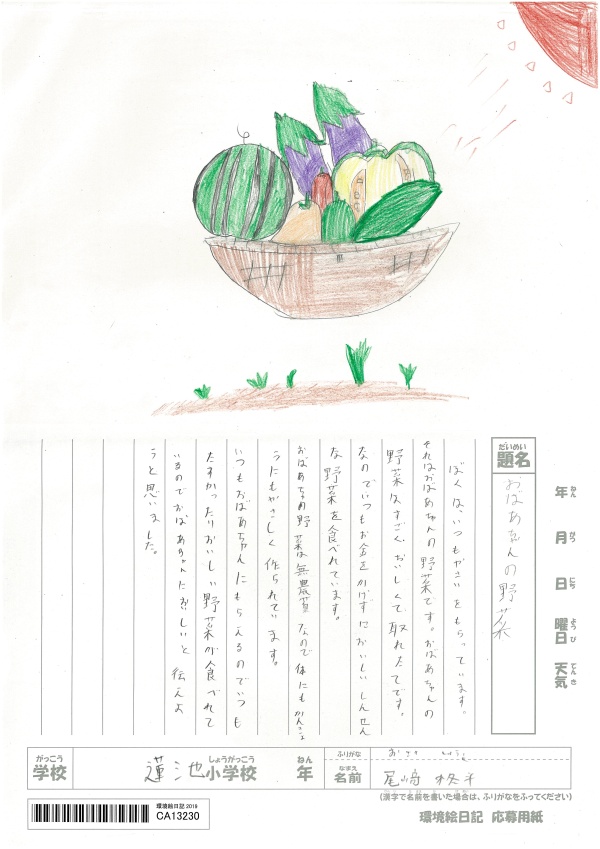 だいめい
題名
おばあちゃんの野菜
年 ねん
月 がつ
日 にち
曜日 ようび
天気 てんき
ぼくは、いつもやさいをもらっています。
それはおばあちゃんの野菜です。おばあちゃんの
野菜はすごくおいしくて取れたてです。
なのでいつもお金をかけずにおいしいしんせん
な野菜を食べれています。
おばあちゃんの野菜は無農薬なので体にもかんきょ
うにもやさしく作られています。
いつもおばあちゃんにもらえるのでいつも
たすかったりおいしい野菜が食べれて
いるのでおばあちゃんにおいしいと伝えよ
うと思いました。
がっこう しょうがっこう ねん ふりがな
学校 蓮池小学校 年
なまえ
名前 尾﨑
(漢字で名前を書いた場合は、ふりがなをふってください)
環境絵日記 応募用紙
環境絵日記 2019
CA13230